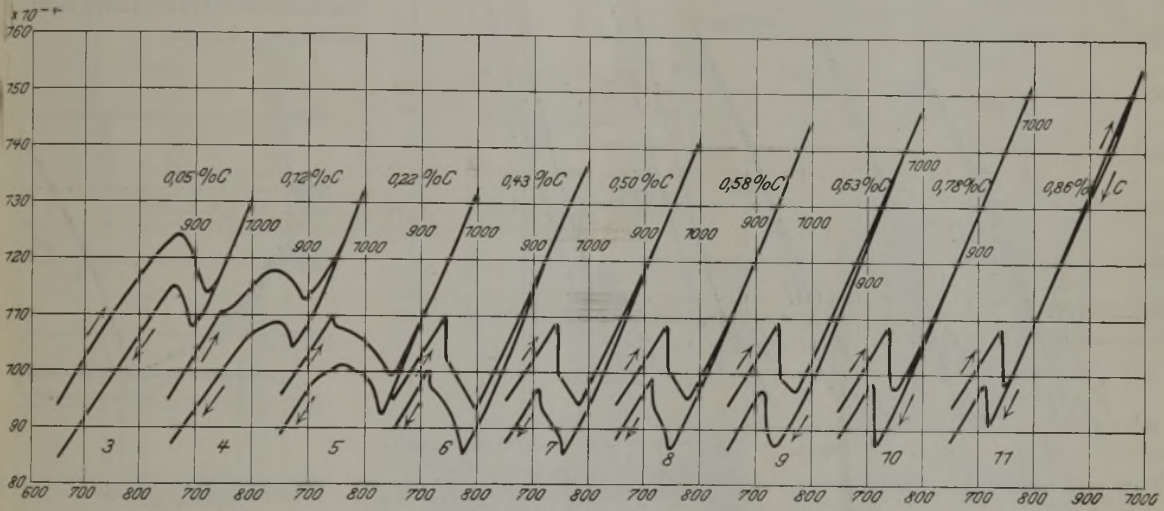 x 10⁻⁴
160
150
1000
140
1000
0,05%C 0,12%C 0,22%C 0,43%C 0,50%C 0,58%C 0,63%C 0,78%C 0,86% C
130
900 1000 900 1000 900 1000 900 1000 900 1000 900 1000
900
120
900
110
100
90
3 4 5 6 7 8 9 10 11
80
600 700 800 700 800 700 800 700 800 700 800 700 800 700 800 700 800 700 800 900 1000